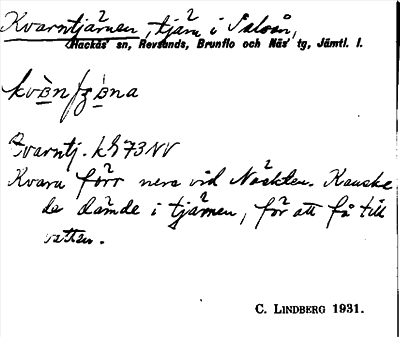 Kvarntjärnen, tjärn i Salsån,
Hackås sn, Revsunds, Brunflo och Näs tg, Jämtl. l.
Kvarntj. kS73NV
Kvarn förr nere vid Näckten. Kanske
de dämde i tjärnen, för att få till
vatten.
C. LINDBERG 1931.